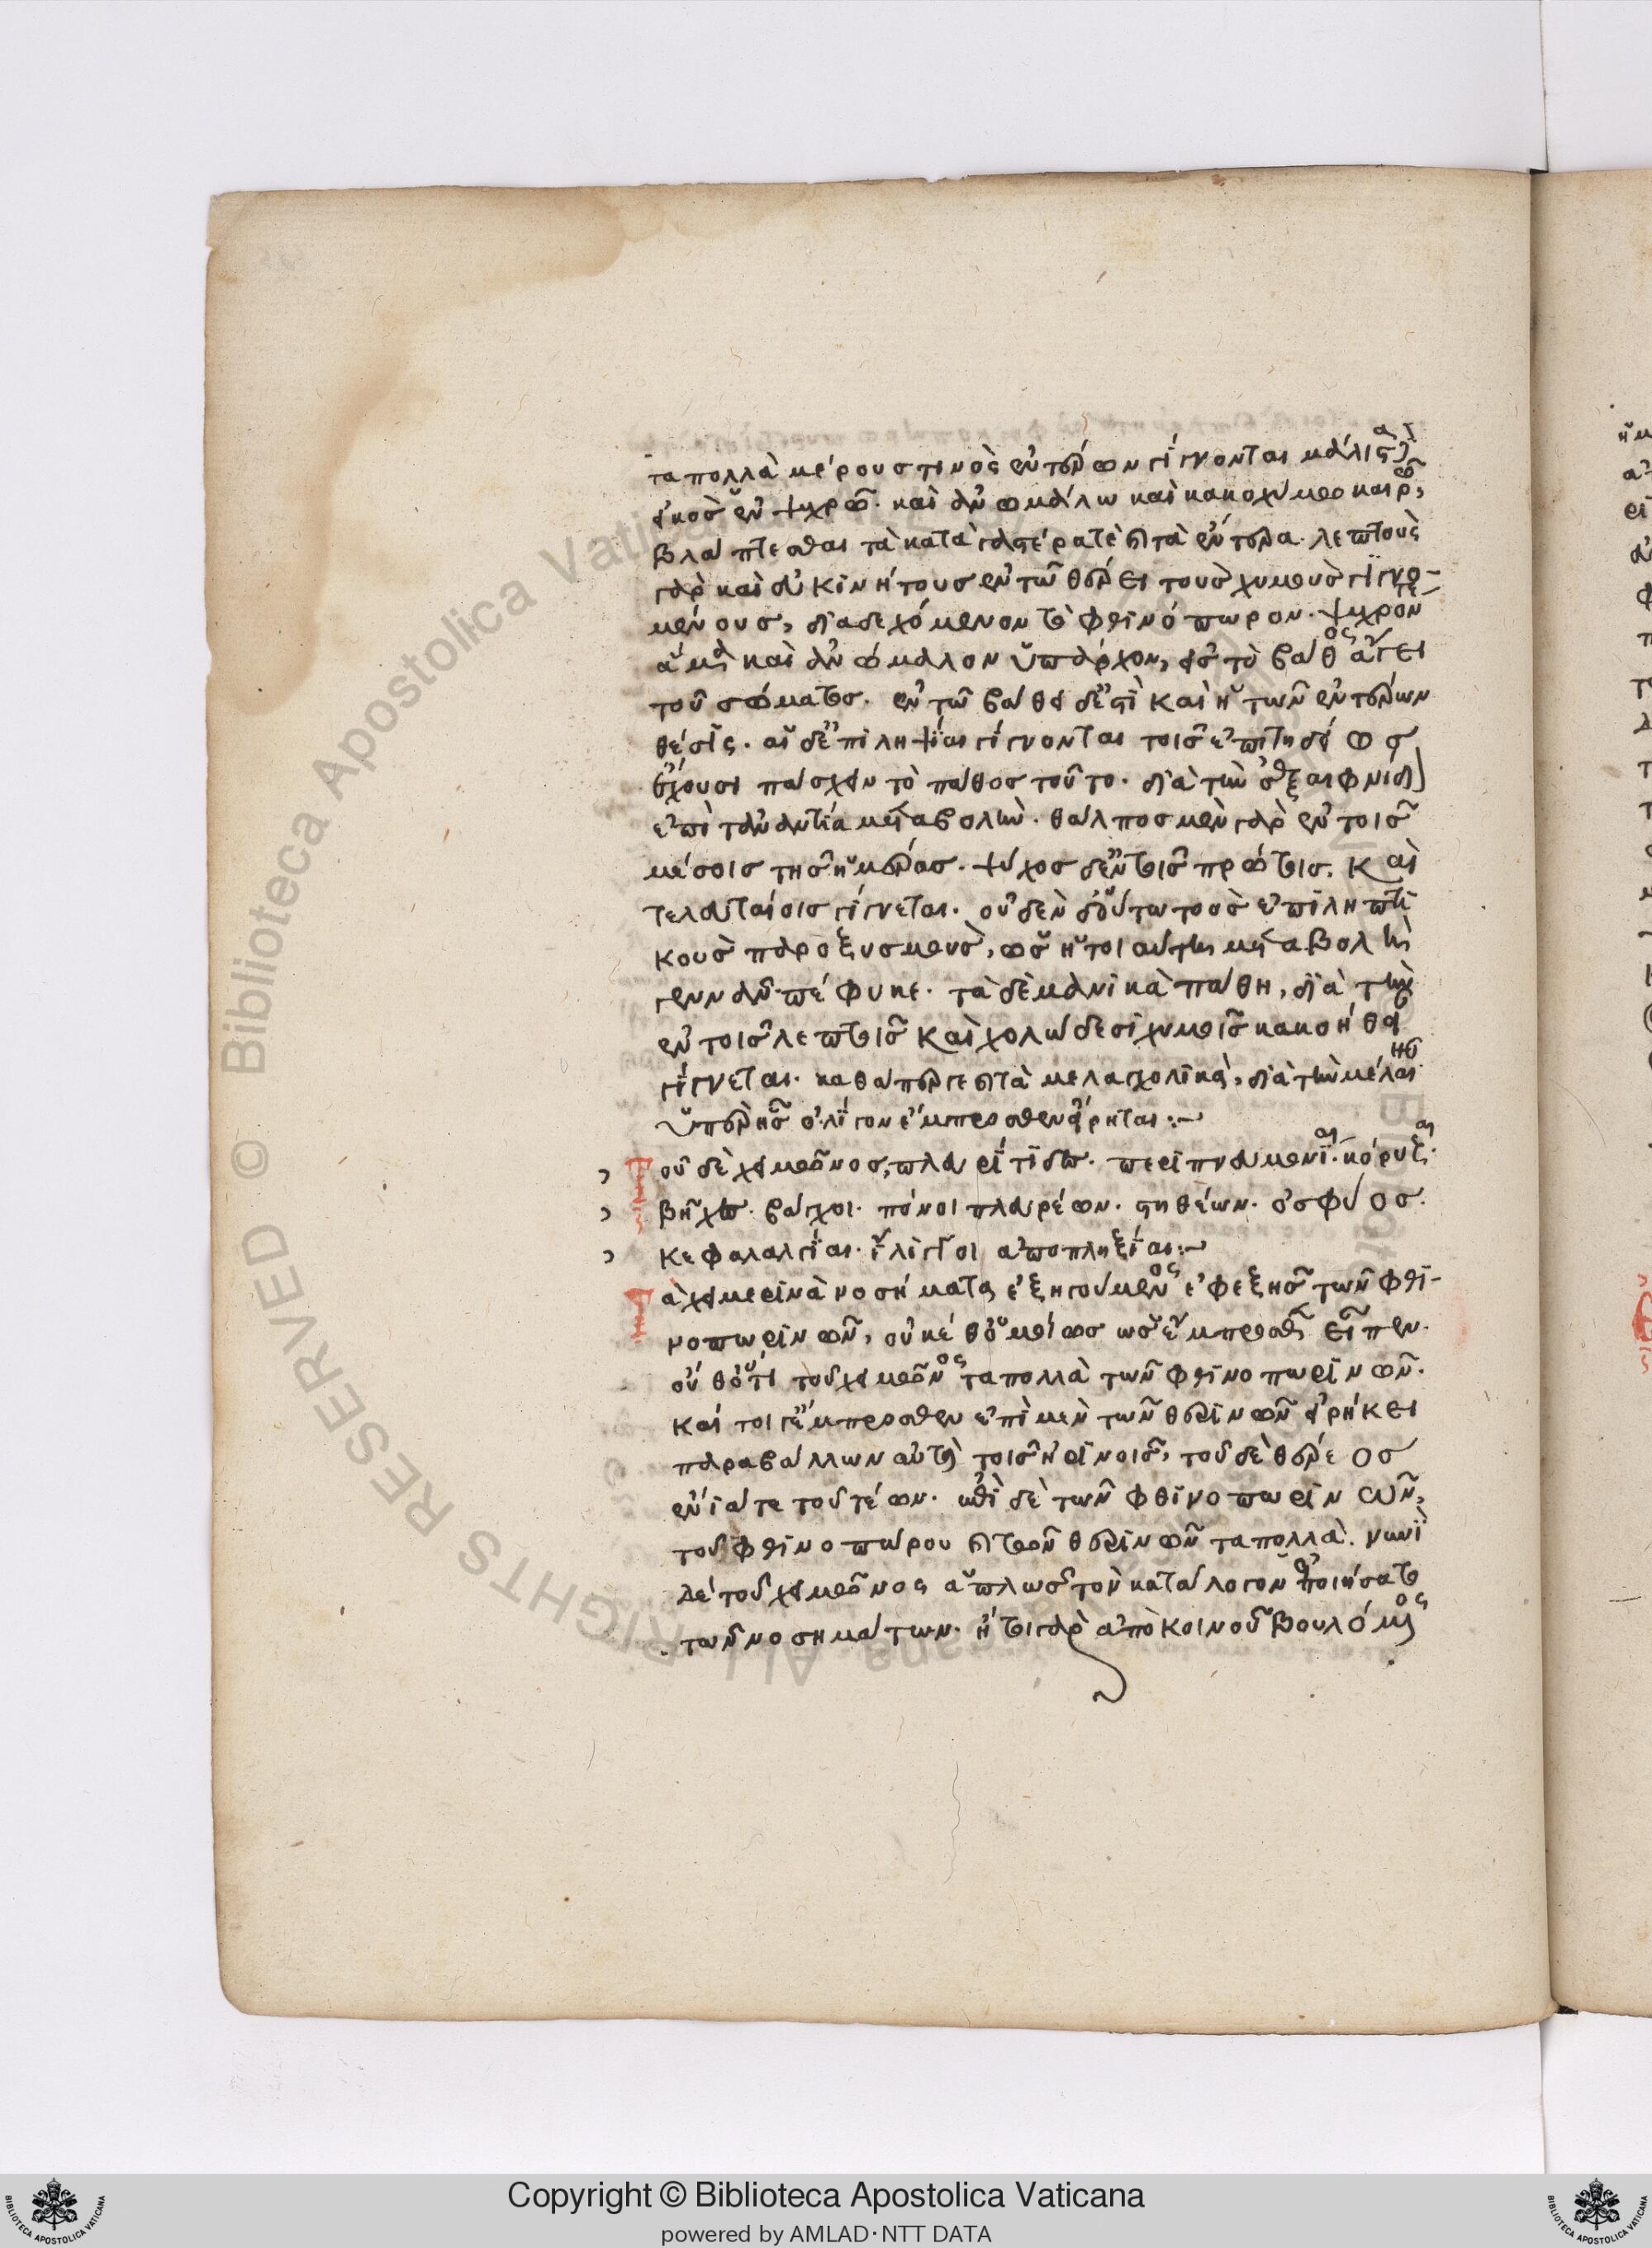 τα πολλὰ μέρους τινὸς ἐντέρων γίγνονται μάλιστα
εἰκὸς ἐν ψυχρῷ. καὶ ἀνωμάλω καὶ κακοχύμω καιρῷ,
βλάπτεσθαι τὰ κατὰ γαστέρα τὲ καὶ τὰ ἔντερα. λεπτοὺς
γὰρ καὶ εὐκινήτους ἐν τῶ θέρει τοὺς χυμοὺς γιγνο-
μένους, διαδεχόμενον τὸ φθινόπωρον. ψυχρόν τε
ἅμα καὶ ἀνώμαλον ὑπάρχον, εἰς τὸ βάθος ἄγει
τοῦ σώματος. ἐν τῶ βάθει δέ ἐστι καὶ ἡ τῶν ἐντέρων
θέσις. αἱ δ' ἐπιληψίαι γίγνονται τοῖς ἐπιτηδείως
ἔχουσι πάσχειν τὸ πάθος τοῦτο. διὰ τὴν ἐξαιφνίδιον
ἐπὶ τἀναντία μεταβολήν. θάλπος μὲν γὰρ ἐν τοῖς
μέσοις τῆς ἡμέρας. ψύχος δ' ἐν τοῖς πρώτοις. καὶ
τελευταίοις γίγνεται. οὐδὲν δ' οὕτω τοὺς ἐπιληπτι
κοὺς παροξυσμοὺς, ὡς ἡ τοιαύτη μεταβολὴ
γεννᾶν πέφυκε. τὰ δὲ μανικὰ πάθη, διὰ τὴν
ἐν τοῖς λεπτοῖς καὶ χολώδεσι χυμοῖς κακοήθειαν
γίγνεται. καθάπερ γε καὶ τὰ μελαγχολικὰ, διὰ τὴν μέλαιναν
ὑπὲρ ἧς ὀλίγον ἔμπροσθεν εἴρηται:
Τοῦ δὲ χειμῶνος, πλευρίτιδες. περιπνευμονίαι. κόρυζαι.
βῆχες. βράγχοι. πόνοι πλευρέων. στηθέων. ὀσφύος.
κεφαλαλγίαι. ἴλιγγοι ἀποπληξίαι:
Τὰ χειμερινὰ νοσήματα ἐξηγούμενος ἐφεξῆς τῶν φθι-
νοπωρινῶν, οὐκέθ' ὁμοίως ὡς ἔμπροσθεν εἶπεν.
οὐθ' ὅτι τοῦ χειμῶνος τα πολλὰ τῶν φθινοπωρινῶν.
καί τοι γ' ἔμπροσθεν ἐπὶ μὲν τῶν θερινῶν εἰρήκει
παραβάλλων αὐτὰ τοῖς ἠρινοῖς, τοῦ δὲ θέρεος
ἔνιά τε τουτέων. ἐπὶ δὲ τῶν φθινοπωρινῶν,
τοῦ φθινοπώρου καὶ τῶν θερινῶν τα πολλὰ. νυνὶ
δὲ τοῦ χειμῶνος ἁπλῶς τὸν κατάλογον ἐποιήσατο
τῶν νοσημάτων. ἤτοι γὰρ ἀπὸ κοινοῦ βουλόμενος